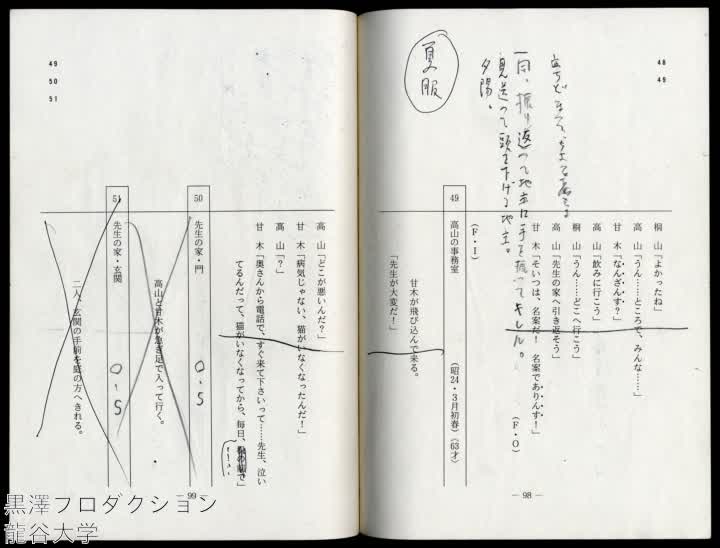 48
49
立ちどまって、
一同、振り返って地主に手を振ってキレル。
見送って頭を下げる地主。
夕陽。
夏服
桐　山「よかったね」
高　山「うん……ところで、みんな……」
甘　木「なんざんす?」
高　山「飲みに行こう」
桐　山「うん……どこへ行こう」
高　山「先生の家へ引き返そう」
甘　木「そいつは、名案だ！　名案でありんす！」
（F・O）
（F・I）
49
高山の事務室
（昭24・3月初春）（63才）
甘木が飛び込んで来る。
「先生が大変だ！」
― 98 ―
49
50
51
高　山「どこが悪いんだ?」
甘　木「病気じゃない、猫がいなくなったんだ！」
高　山「?」
甘　木「奥さんから電話で、すぐ来て下さいって……先生、泣い
てるんだって、猫がいなくなってから、毎日、
……」
50
先生の家・門
0.5
高山と甘木が急ぎ足で入って行く。
51
先生の家・玄関
0.5
二人、玄関の手前を庭の方へきれる。
99
黒澤プロダクション
龍谷大学